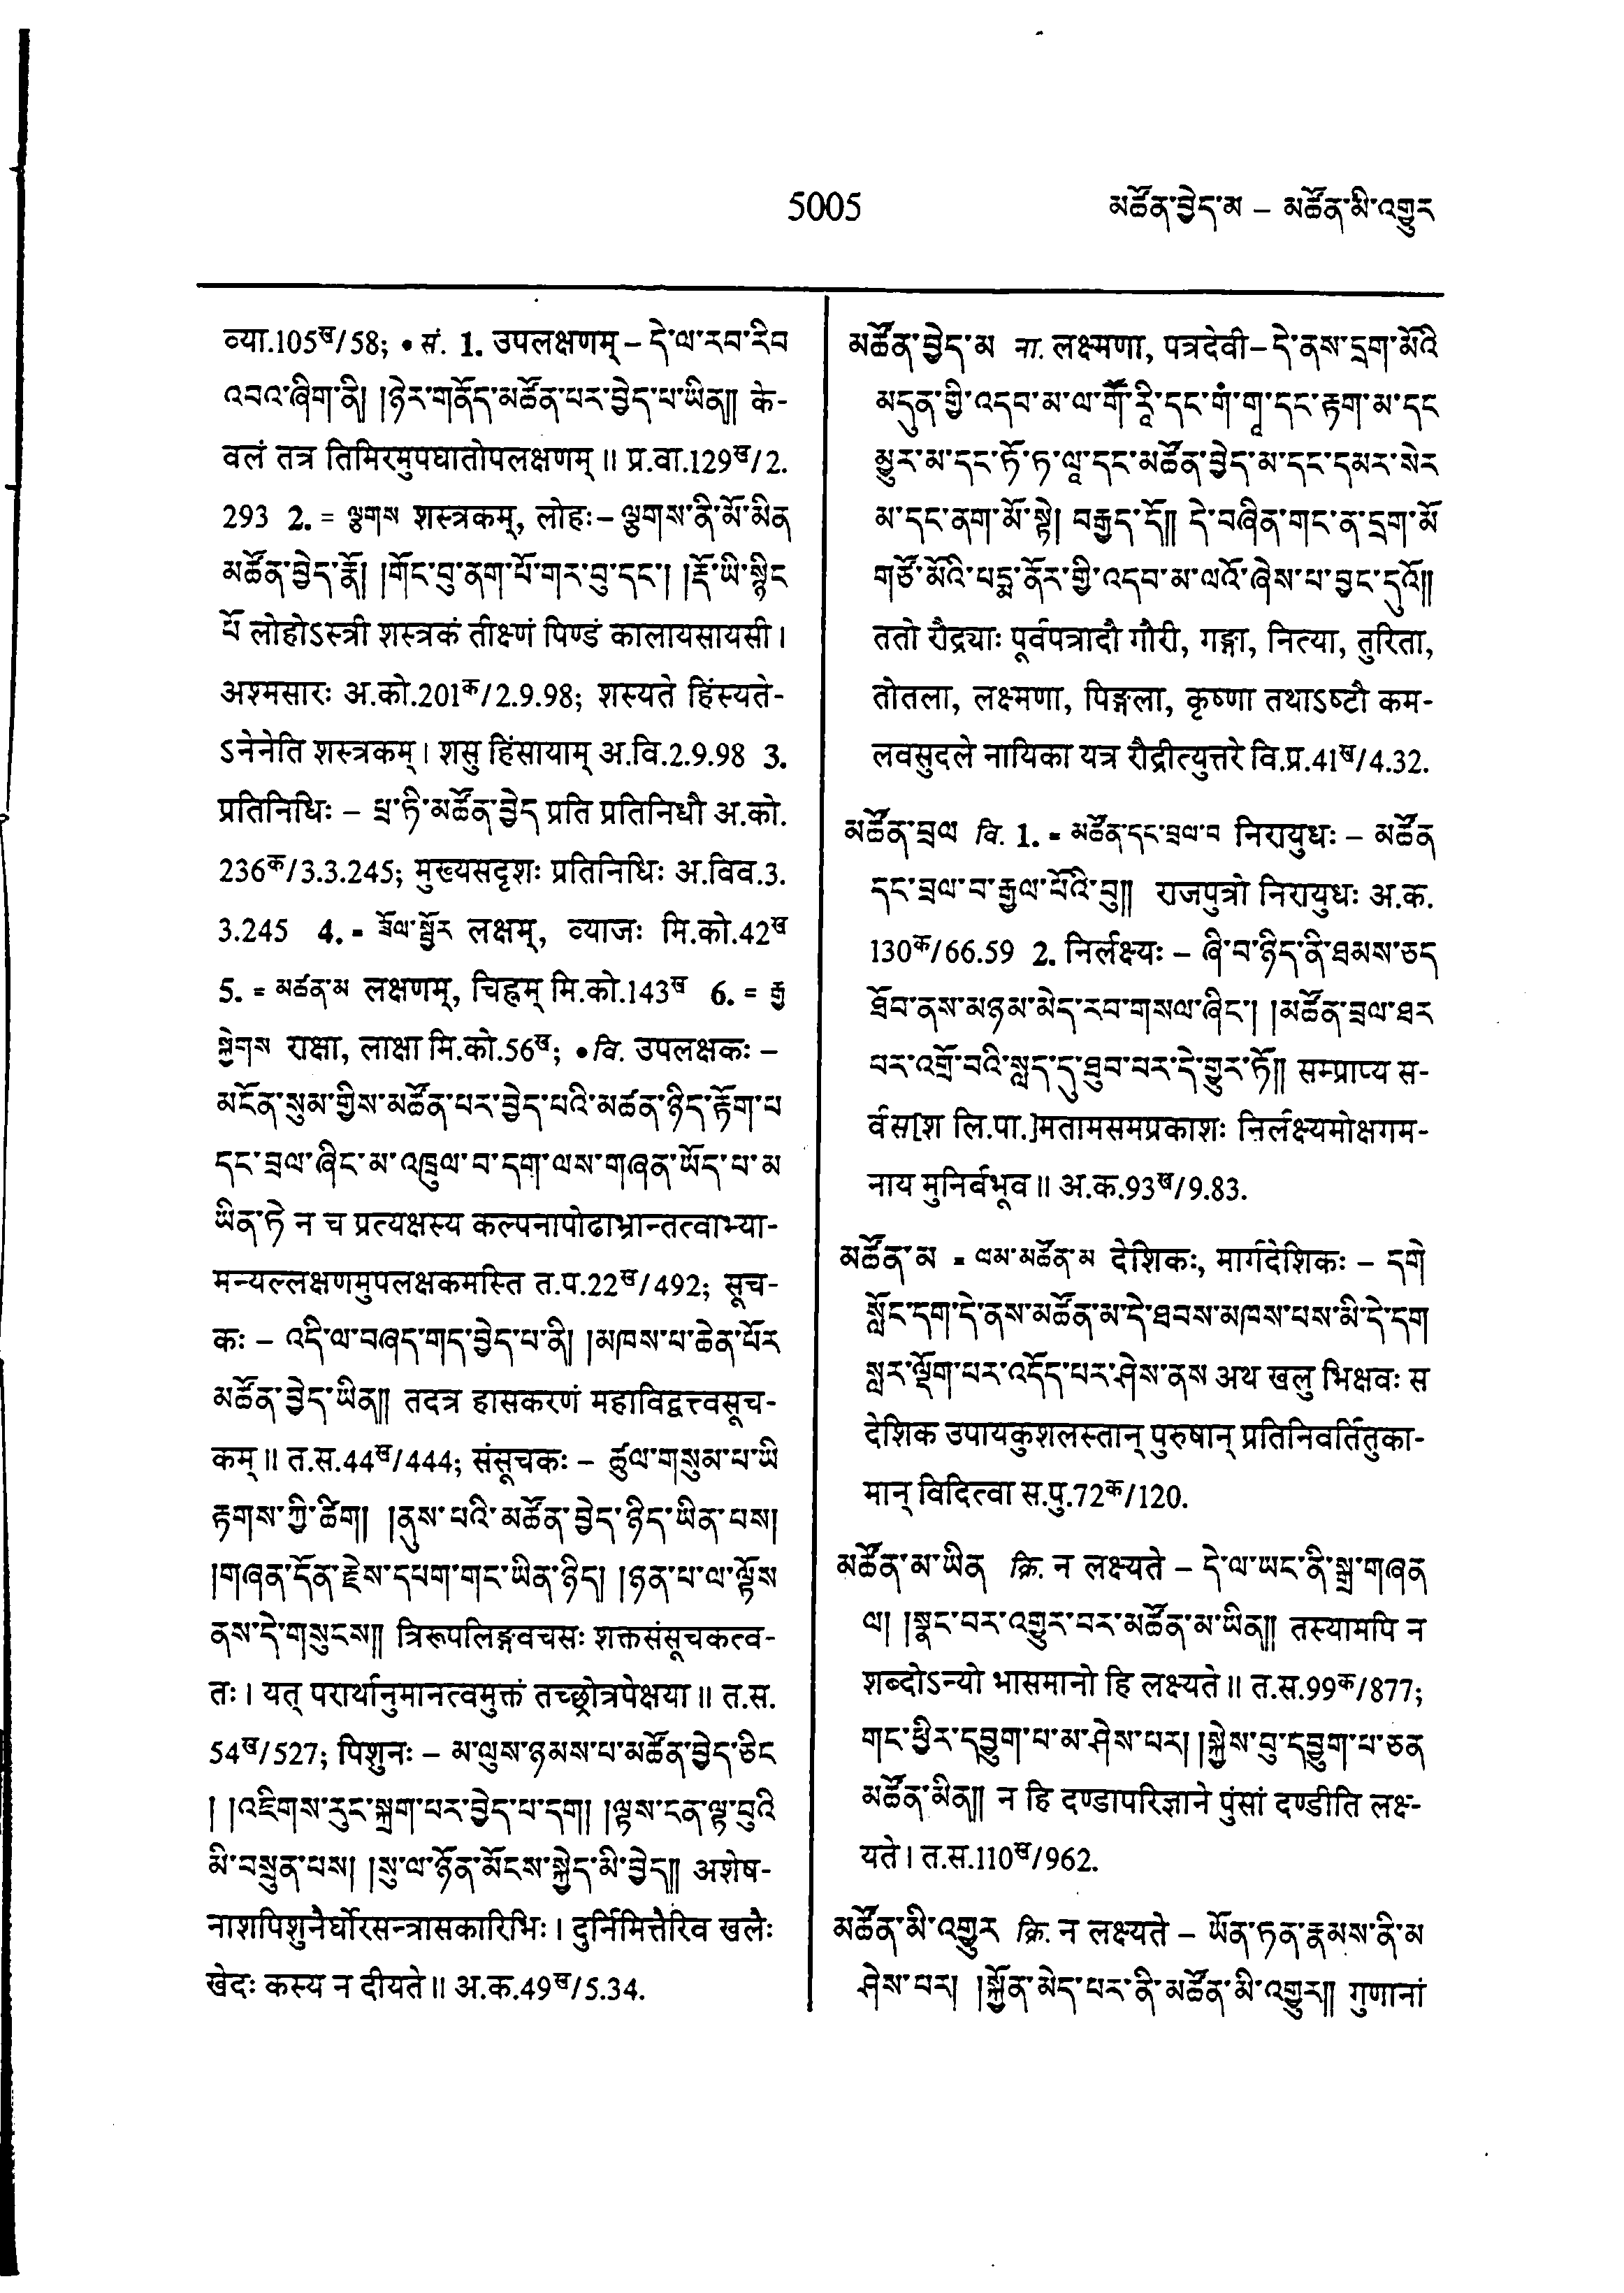 5005
མཚོན་བྱེད་མ – མཚོན་མི་འགྱུར
व्या.105ख/58; • सं. 1. उपलक्षणम् – དེ་ལ་རབ་རིབ
འབའ་ཞིག་ནི། །ཉེར་གནོད་མཚོན་པར་བྱེད་པ་ཡིན།། के-
वलं तत्र तिमिरमुपघातोपलक्षणम् ॥ प्र.वा.129ख/2.
293 2. = ལྕགས शस्त्रकम्, लोहः – ལྕགས་ནི་མོ་མིན
མཚོན་བྱེད་རྣོ། །གོང་བུ་ནག་པོ་གར་བུ་དང་། །རྡོ་ཡི་སྙིང
པོ लोहोऽस्त्री शस्त्रकं तीक्ष्णं पिण्डं कालायसायसी ।
अश्मसारः अ.को.201क/2.9.98; शस्यते हिंस्यते-
ऽनेनेति शस्त्रकम् । शसु हिंसायाम् अ.वि.2.9.98 3.
प्रतिनिधिः – པྲ་ཏི་མཚོན་བྱེད प्रति प्रतिनिधौ अ.को.
236क/3.3.245; मुख्यसदृशः प्रतिनिधिः अ.विव.3.
3.245 4. = ཟོལ་སྦྱོར लक्षम्, व्याजः मि.को.42ख
5. = མཚན་མ लक्षणम्, चिह्नम् मि.को.143ख 6. = རྒྱ
སྐྱེགས राक्षा, लाक्षा मि.को.56ख; • वि. उपलक्षकः –
མངོན་སུམ་གྱིས་མཚོན་པར་བྱེད་པའི་མཚན་ཉིད་རྟོག་པ
དང་བྲལ་ཞིང་མ་འཁྲུལ་བ་དག་ལས་གཞན་ཡོད་པ་མ
ཡིན་ཏེ न च प्रत्यक्षस्य कल्पनापोढाभ्रान्तत्वाभ्या-
मन्यल्लक्षणमुपलक्षकमस्ति त.प.22ख/492; सूच-
कः – འདི་ལ་བཞད་གད་བྱེད་པ་ནི། །མཁས་པ་ཆེན་པོར
མཚོན་བྱེད་ཡིན།། तदत्र हासकरणं महाविद्वत्त्वसूच-
कम् ॥ त.स.44ख/444; संसूचकः – ཚུལ་གསུམ་པ་ཡི
རྟགས་ཀྱི་ཚིག། །ནུས་པའི་མཚོན་བྱེད་ཉིད་ཡིན་པས།
།གཞན་དོན་རྗེས་དཔག་གང་ཡིན་ཉིད། །ཉན་པ་ལ་ལྟོས
ནས་དེ་གསུངས།། त्रिरूपलिङ्गवचसः शक्तसंसूचकत्व-
तः । यत् परार्थानुमानत्वमुक्तं तच्छ्रोत्रपेक्षया ॥ त.स.
54ख/527; पिशुनः – མ་ལུས་ཉམས་པ་མཚོན་བྱེད་ཅིང
། །འཇིགས་རུང་སྐྲག་པར་བྱེད་པ་དག། །ལྟས་ངན་ལྟ་བུའི
མི་བསྲུན་པས། །སུ་ལ་ཉོན་མོངས་སྐྱེད་མི་བྱེད།། अशेष-
नाशपिशुनैर्घोरसन्त्रासकारिभिः । दुर्निमित्तैरिव खलैः
खेदः कस्य न दीयते ॥ अ.क.49ख/5.34.
མཚོན་བྱེད་མ ना. लक्ष्मणा, पत्रदेवी – དེ་ནས་དྲག་མོའི
མདུན་གྱི་འདབ་མ་ལ་གོཽ་རཱི་དང་གཾ་གཱ་དང་རྟག་མ་དང
མྱུར་མ་དང་ཏོ་ཏ་ལཱ་དང་མཚོན་བྱེད་མ་དང་དམར་སེར
མ་དང་ནག་མོ་སྟེ། བརྒྱད་དོ།། དེ་བཞིན་གང་ན་དྲག་མོ
གཙོ་མོའི་པདྨ་ནོར་གྱི་འདབ་མ་ལའོ་ཞེས་པ་བྱང་དུའོ།།
ततो रौद्र्याः पूर्वपत्रादौ गौरी, गङ्गा, नित्या, तुरिता,
तोतला, लक्ष्मणा, पिङ्गला, कृष्णा तथाऽष्टौ कम-
लवसुदले नायिका यत्र रौद्रीत्युत्तरे वि.प्र.41ख/4.32.
མཚོན་བྲལ वि. 1. = མཚོན་དང་བྲལ་བ निरायुधः – མཚོན
དང་བྲལ་བ་རྒྱལ་པོའི་བུ།། राजपुत्रो निरायुधः अ.क.
130क/66.59 2. निर्लक्ष्यः – ཞི་བ་ཉིད་ནི་ཐམས་ཅད
ཐོབ་ནས་མཉམ་མེད་རབ་གསལ་ཞིང་། །མཚོན་བྲལ་ཐར
པར་འགྲོ་བའི་སླད་དུ་ཐུབ་པར་དེ་གྱུར་ཏོ།། सम्प्राप्य स-
र्वस[श लि.पा.]मतामसमप्रकाशः निर्लक्ष्यमोक्षगम-
नाय मुनिर्बभूव ॥ अ.क.93ख/9.83.
མཚོན་མ = ལམ་མཚོན་མ देशिकः, मार्गदेशिकः – དགེ
སློང་དག་དེ་ནས་མཚོན་མ་དེ་ཐབས་མཁས་པས་མི་དེ་དག
སླར་ལྡོག་པར་འདོད་པར་ཤེས་ནས अथ खलु भिक्षवः स
देशिक उपायकुशलस्तान् पुरुषान् प्रतिनिवर्तितुका-
मान् विदित्वा स.पु.72क/120.
མཚོན་མ་ཡིན क्रि. न लक्ष्यते – དེ་ལ་ཡང་ནི་སྒྲ་གཞན
ལ། །སྣང་བར་འགྱུར་བར་མཚོན་མ་ཡིན།། तस्यामपि न
शब्दोऽन्यो भासमानो हि लक्ष्यते ॥ त.स.99क/877;
གང་ཕྱིར་དབྱུག་པ་མ་ཤེས་པར། །སྐྱེས་བུ་དབྱུག་པ་ཅན
མཚོན་མིན།། न हि दण्डापरिज्ञाने पुंसां दण्डीति लक्ष-
यते । त.स.110ख/962.
མཚོན་མི་འགྱུར क्रि. न लक्ष्यते – ཡོན་ཏན་རྣམས་ནི་མ
ཤེས་པར། །སྐྱོན་མེད་པར་ནི་མཚོན་མི་འགྱུར།། गुणानां